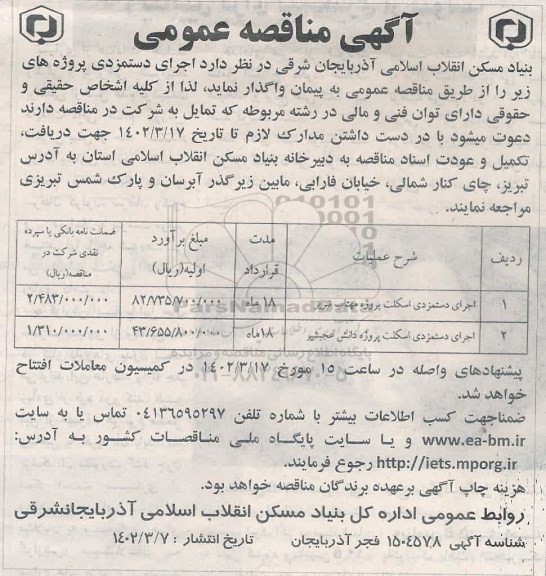 آگهی مناقصه عمومی
بنیاد مسکن انقلاب اسلامی آذربایجان شرقی در نظر دارد اجرای دستمزدی پروژه های
زیر را از طریق مناقصه عمومی به پیمان واگذار نماید، لذا از کلیه اشخاص حقیقی و
حقوقی دارای توان فنی و مالی در رشته مربوطه که تمایل به شرکت در مناقصه دارند
دعوت میشود با در دست داشتن مدارک لازم تا تاریخ ۱۴۰۲/۳/۱۷ جهت دریافت،
تکمیل و عودت اسناد مناقصه به دبیرخانه بنیاد مسکن انقلاب اسلامی استان به آدرس
تبریز، چای کنار شمالی، خیابان فارابی، مابین زیرگذر آبرسان و پارک شمس تبریزی
مراجعه نمایند.
ردیف شرح عملیات مدت قرارداد مبلغ برآورد اولیه(ریال) ضمانت نامه بانکی یا سپرده نقدی شرکت در مناقصه(ریال)
۱ اجرای دستمزدی اسکلت پروژه مهتاب تبریز ۱۸ ماه ۸۲/۷۳۵/۷۰۰/۰۰۰ ۲/۴۸۳/۰۰۰/۰۰۰
۲ اجرای دستمزدی اسکلت پروژه دانش عجبشیر ۱۸ماه ۴۳/۶۵۵/۸۰۰/۰۰۰ ۱/۳۱۰/۰۰۰/۰۰۰
ParsNamadData
پیشنهادهای واصله در ساعت ۱۵ مورخ ۱۴۰۲/۳/۱۷ در کمیسیون معاملات افتتاح
خواهد شد.
ضمناجهت کسب اطلاعات بیشتر با شماره تلفن ۰۴۱۳۶۵۹۵۲۹۷ تماس یا به سایت
www.ea-bm.ir و یا سایت پایگاه ملی مناقصات کشور به آدرس:
http://iets.mporg.ir رجوع فرمایند.
هزینه چاپ آگهی برعهده برندگان مناقصه خواهد بود.
روابط عمومی اداره کل بنیاد مسکن انقلاب اسلامی آذربایجانشرقی
شناسه آگهی ۱۵۰۴۵۷۸ فجر آذربایجان تاریخ انتشار : ۱۴۰۲/۳/۷